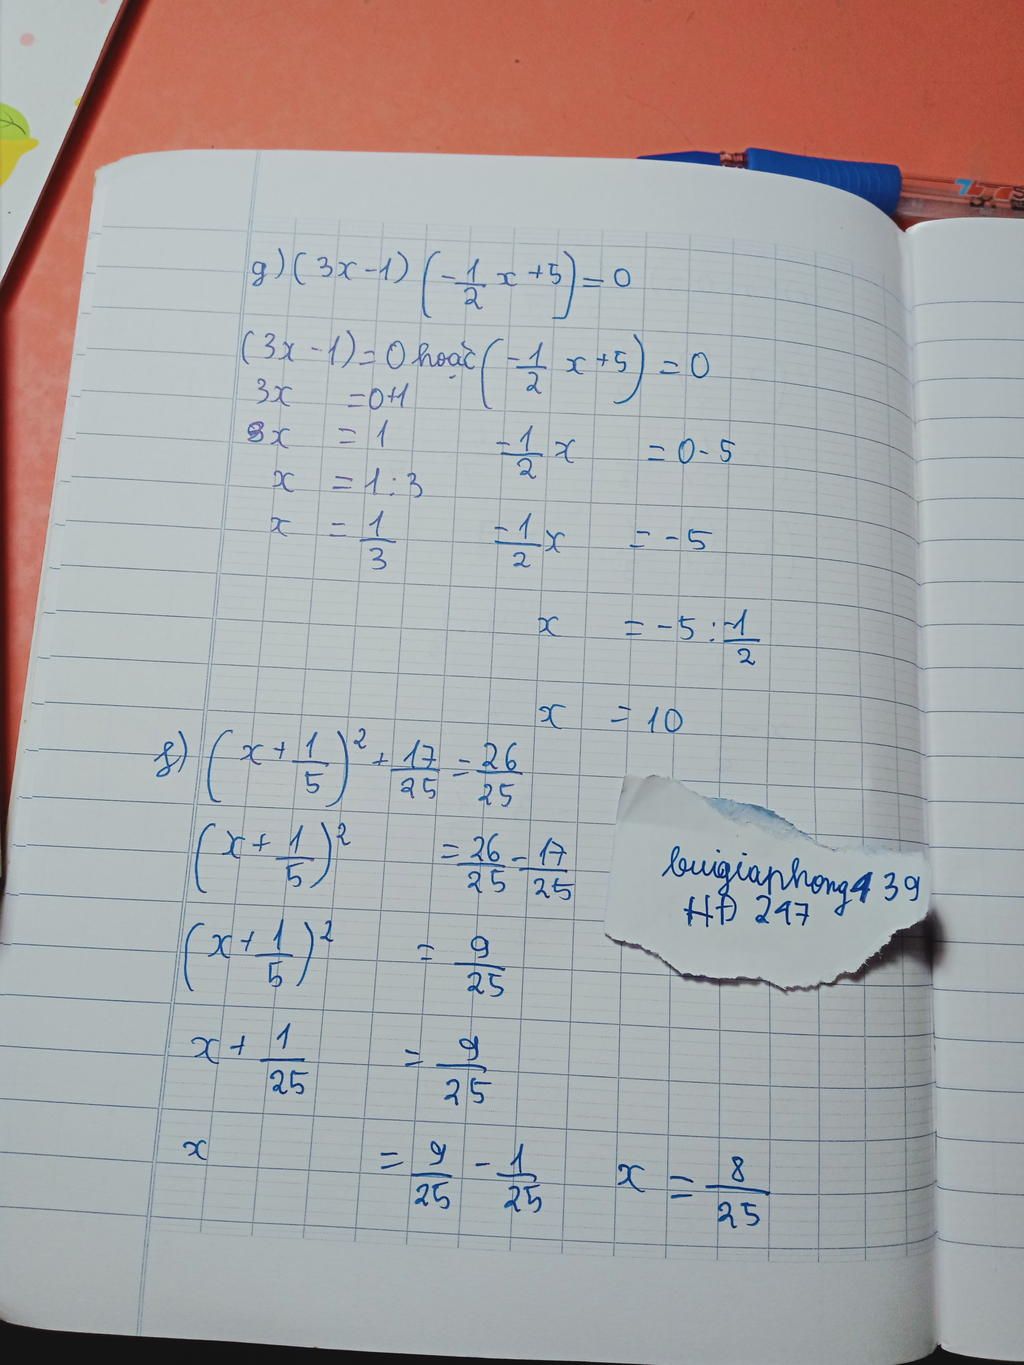 g) (3x-1) (-1/2 x +5) = 0
(3x-1) = 0 hoặc (-1/2 x +5) = 0
3x = 0+1
3x = 1 -1/2 x = 0-5
x = 1:3
x = 1/3 -1/2 x = -5
x = -5 : -1/2
x = 10
g) (x + 1/5)² + 17/25 = 26/25
(x + 1/5)² = 26/25 - 17/25
(x + 1/5)² = 9/25
x + 1/25 = 9/25
x = 9/25 - 1/25 x = 8/25
buigiaphong439
HĐ 247